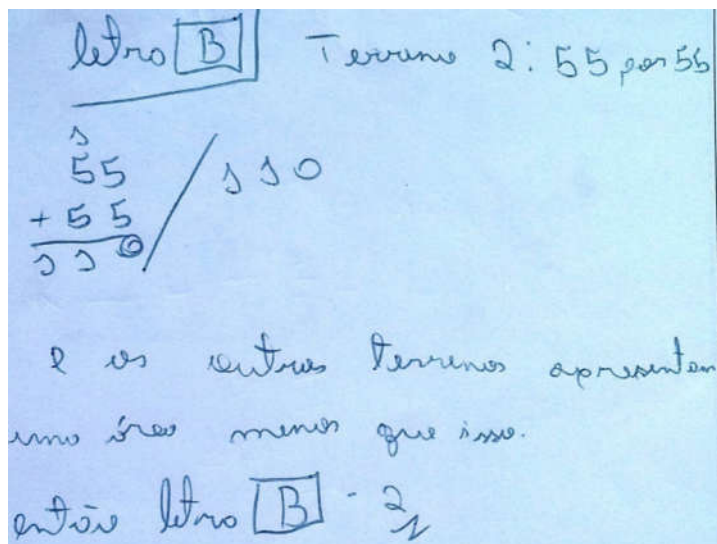 letra B Terreno 2: 55 por 55
1
55 / 110
+ 55
110
e os outros terrenos apresentam
uma área menor que isso.
então letra B - 2